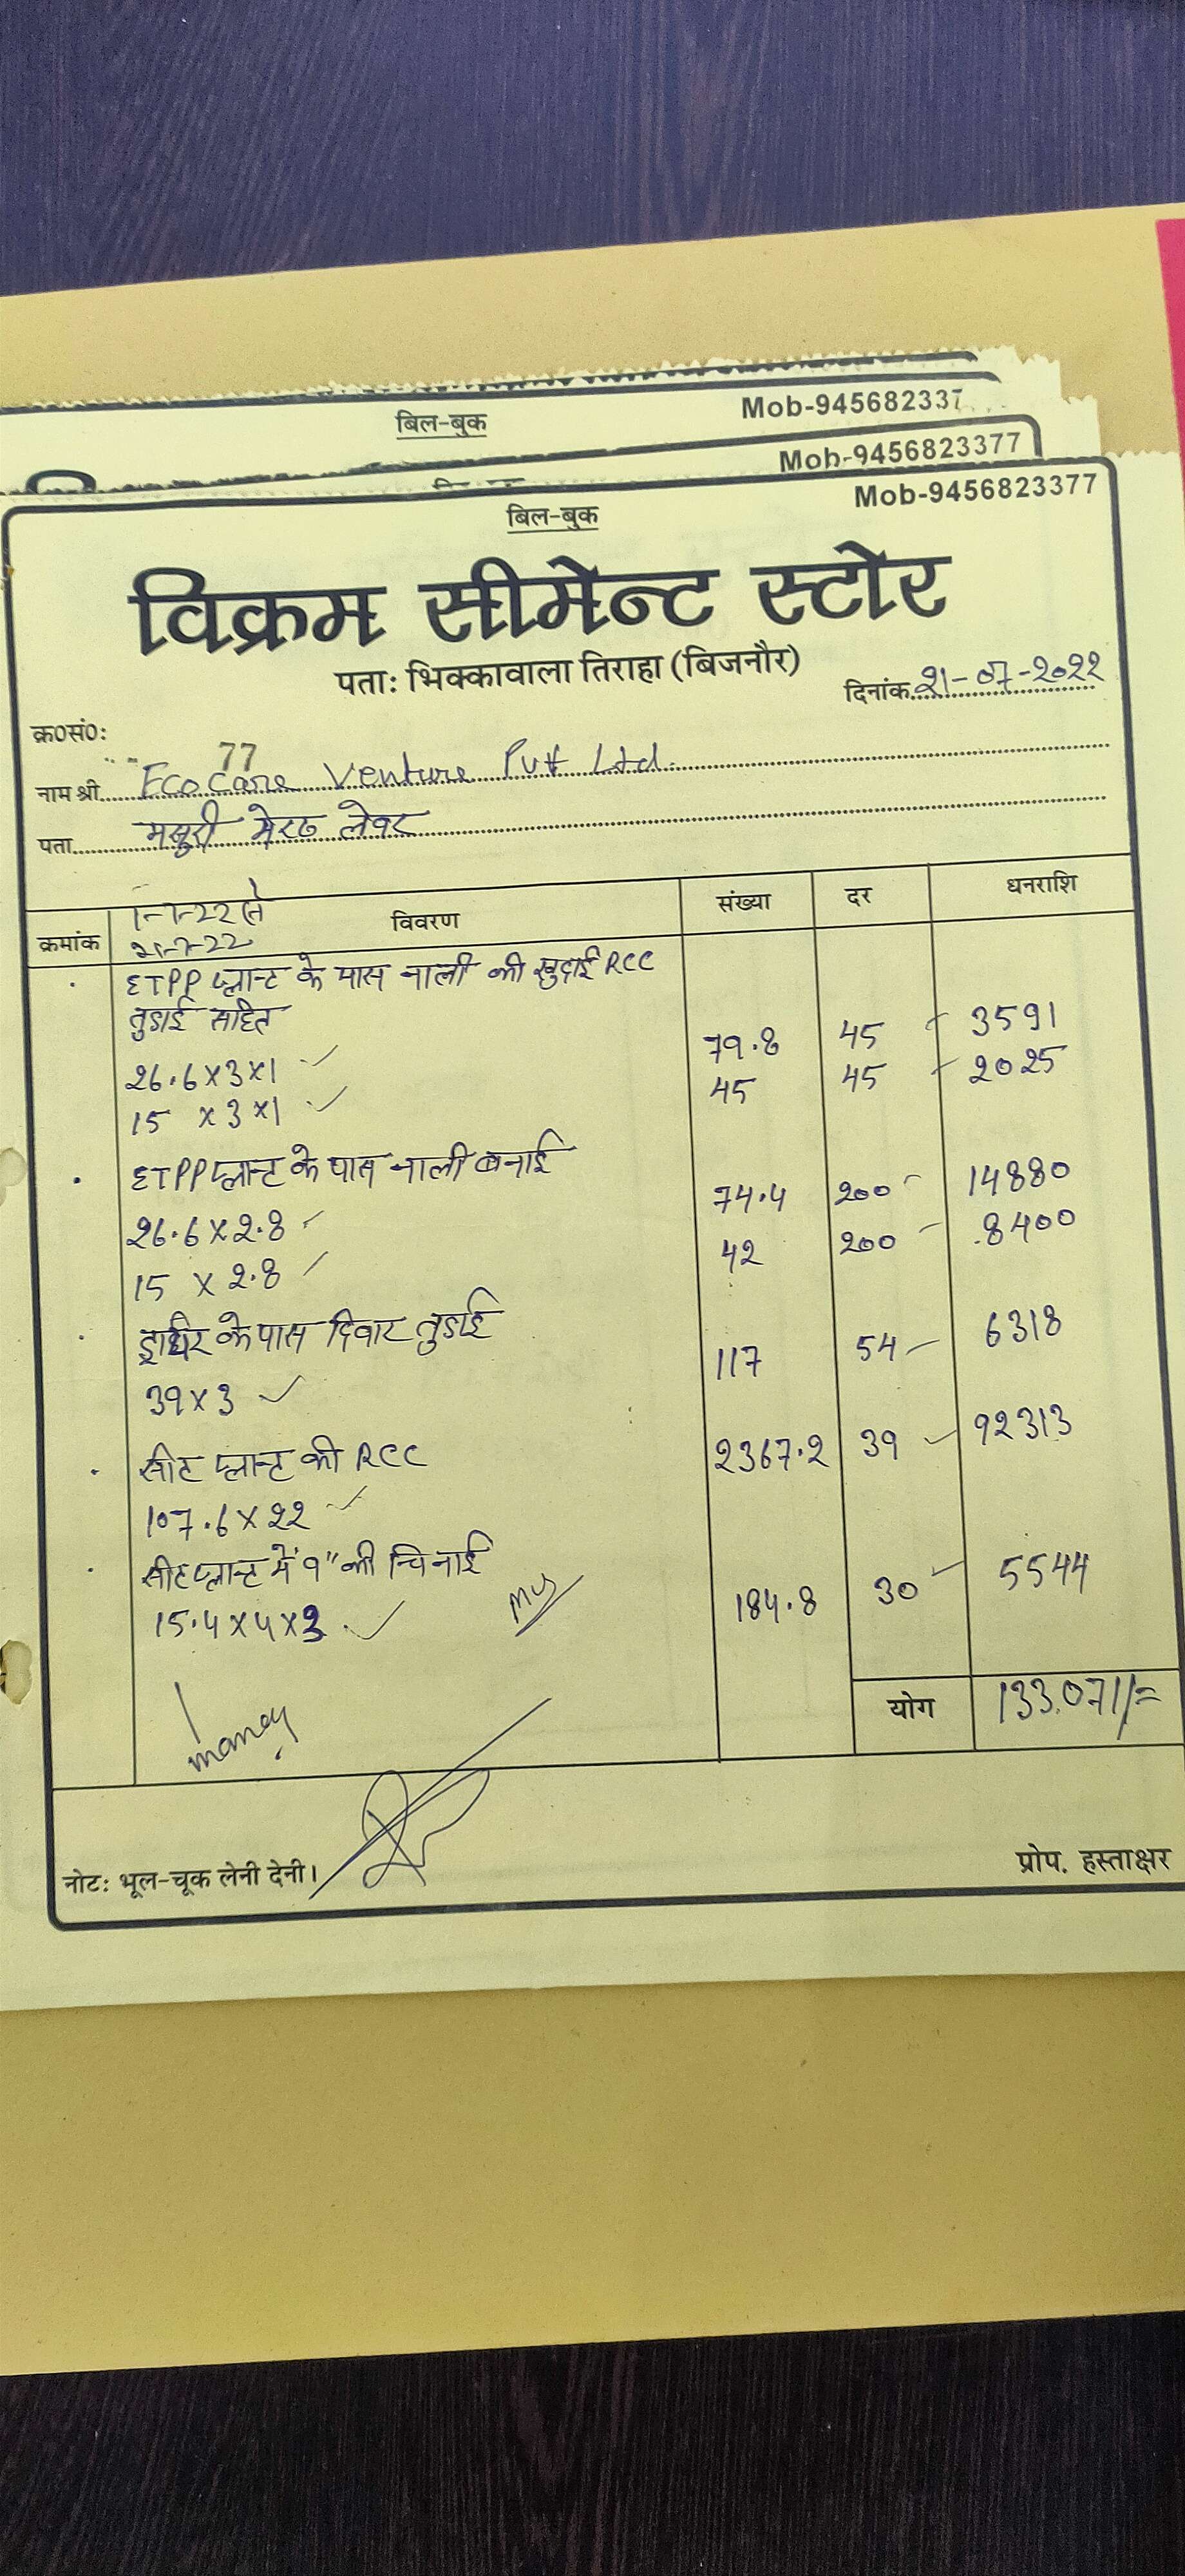 बिल-बुक Mob-945682337
Mob-9456823377
बिल-बुक Mob-9456823377
विक्रम सीमेन्ट स्टोर
पताः भिक्कावाला तिराहा (बिजनौर)
दिनांक 21-07-2022
क्र0सं0:
77
नाम श्री Ecocare Venture Pvt Ltd.
पता मसुरी मेरठ लेवर
क्रमांक 1-7-22 से 21-7-22 विवरण संख्या दर धनराशि
ETPP प्लान्ट के पास नाली की खुदाई RCC
तुडाई सहित
26.6x3x1 79.8 45 3591
15 x3x1 45 45 2025
ETPP प्लान्ट के पास नाली बनाई
26.6x2.8 74.4 200 14880
15 x 2.8 42 200 8400
के पास दिवार तुडाई
39x3 117 54 6318
सीट प्लान्ट की RCC
107.6x22 2367.2 39 92313
सीट प्लान्ट में 9" की चिनाई
15.4x4x3 184.8 30 5544
योग 133,071/=
नोटः भूल-चूक लेनी देनी।
प्रोप. हस्ताक्षर